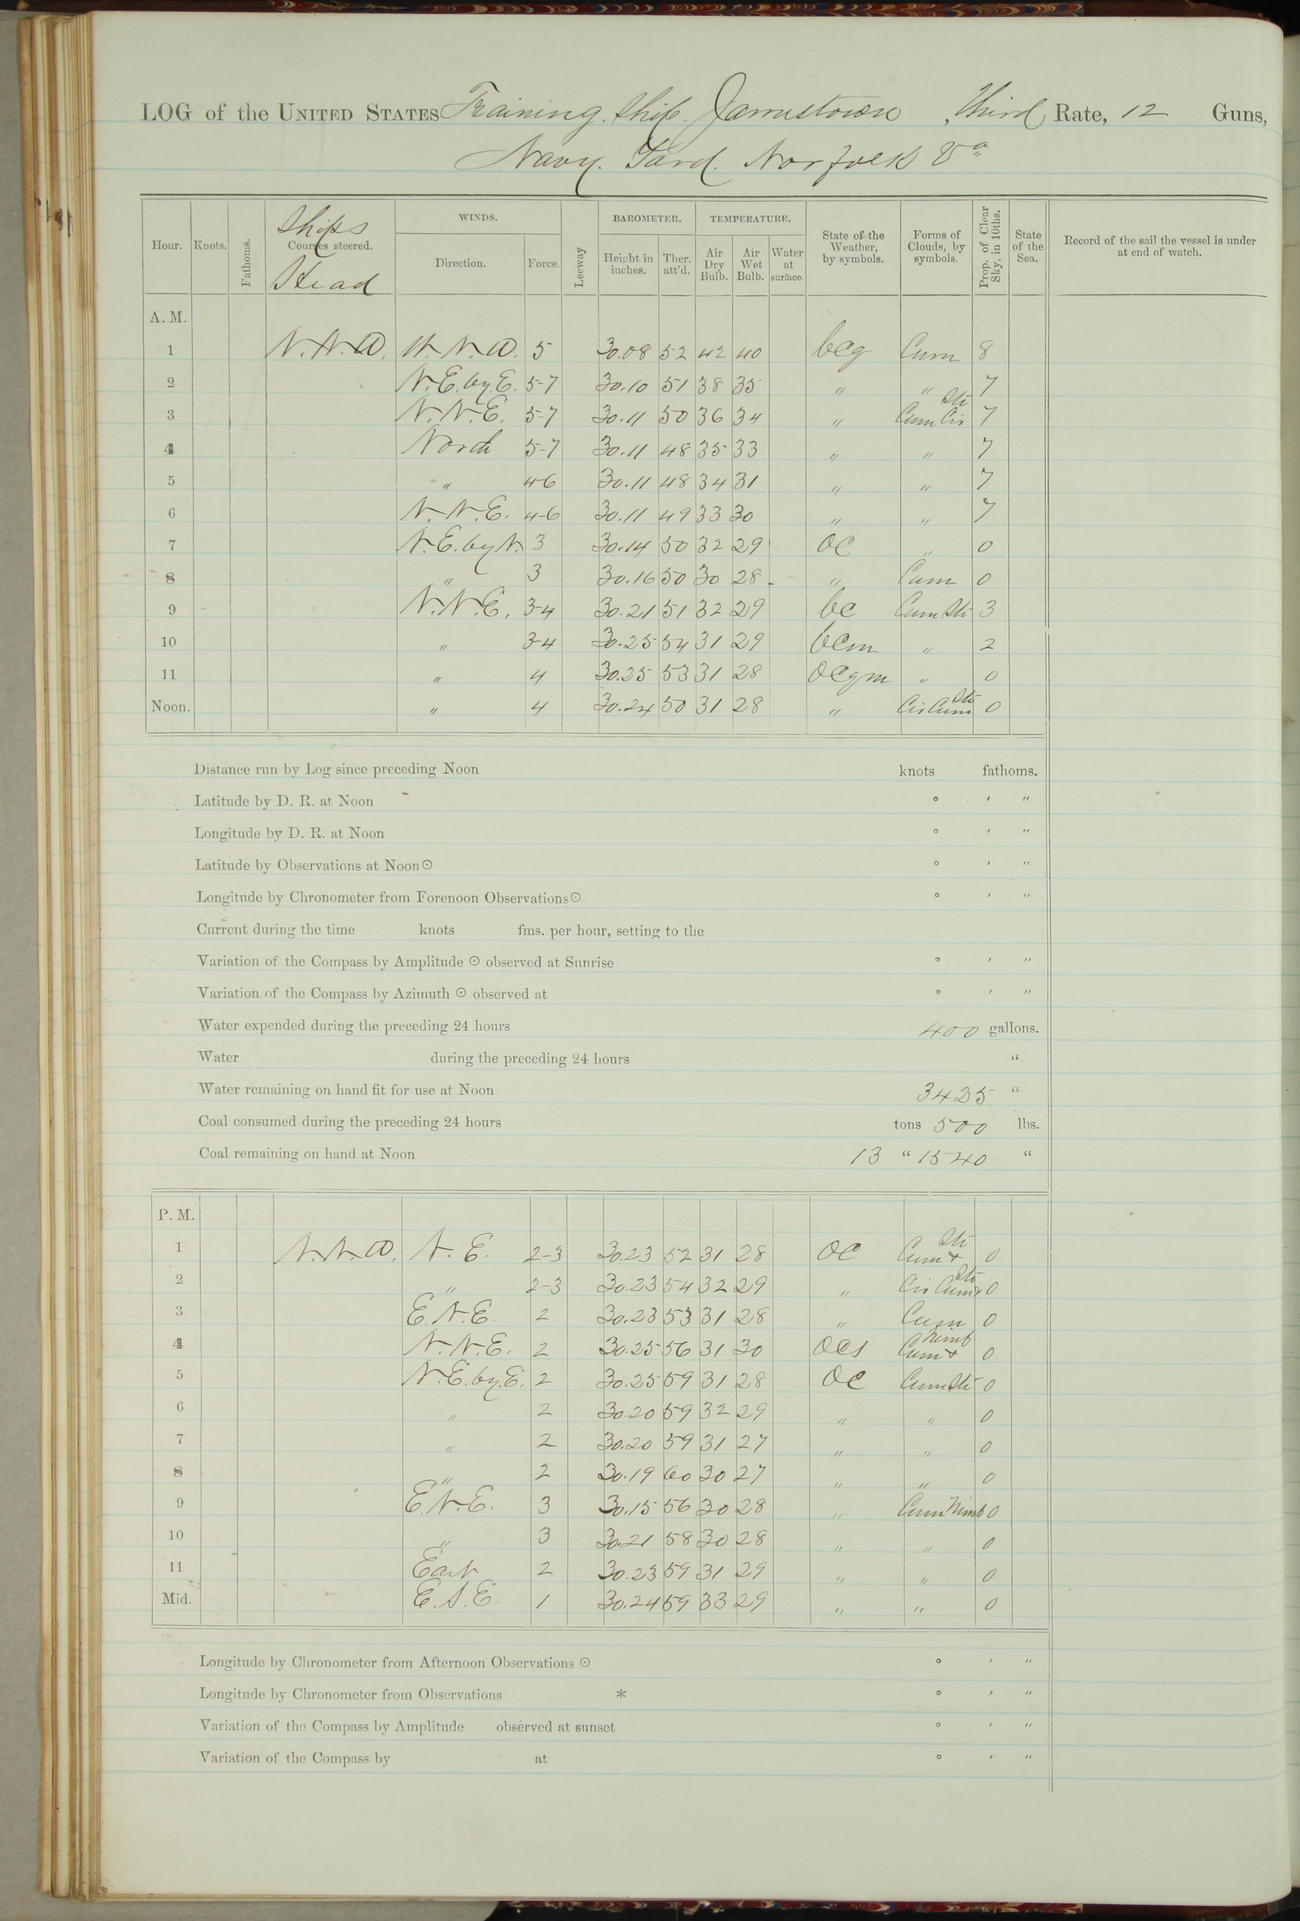 LOG of the UNITED STATES Training Ship Jamestown, Third Rate, 12 Guns,
Navy Yard. Norfolk Va
Hour. Knots. Fathoms. Ships Courses steered. Head WINDS. Direction. Force. Leeway BAROMETER. Height in inches. Ther. att'd. TEMPERATURE. Air Dry Bulb. Air Wet Bulb. Water at surface. State of the Weather, by symbols. Forms of Clouds, by symbols. Prop. of Clear Sky, in 10ths. State of the Sea. Record of the sail the vessel is under at end of watch.
A. M.
1 N.N.W. W.N.W. 5 30.08 52 42 40 bcq Cum 8
2 N.E. by E. 5-7 30.10 51 38 35 " " 7
3 N.N.E. 5-7 30.11 50 36 34 " Cum Cir Str 7
4 North 5-7 30.11 48 35 33 " " 7
5 " 4-6 30.11 48 34 31 " " 7
6 N.N.E. 4-6 30.11 49 33 30 " " 7
7 N.E. by N. 3 30.14 50 32 29 oc " 0
8 " 3 30.16 50 30 28 " Cum 0
9 N.N.E. 3-4 30.21 51 32 29 bc Cum Str 3
10 " 3-4 30.25 54 31 29 bcm " 2
11 " 4 30.25 53 31 28 ocqm " 0
Noon. " 4 30.24 50 31 28 " Cir Cum Str 0
Distance run by Log since preceding Noon knots fathoms.
Latitude by D. R. at Noon ° ′ ″
Longitude by D. R. at Noon ° ′ ″
Latitude by Observations at Noon ☉ ° ′ ″
Longitude by Chronometer from Forenoon Observations ☉ ° ′ ″
Current during the time knots fms. per hour, setting to the
Variation of the Compass by Amplitude ☉ observed at Sunrise ° ′ ″
Variation of the Compass by Azimuth ☉ observed at ° ′ ″
Water expended during the preceding 24 hours 400 gallons.
Water during the preceding 24 hours "
Water remaining on hand fit for use at Noon 3425 "
Coal consumed during the preceding 24 hours tons 500 lbs.
Coal remaining on hand at Noon 13 " 1540 "
P. M.
1 N.N.W. N.E. 2-3 30.23 52 31 28 oc Cum & Str 0
2 " 2-3 30.23 54 32 29 " Cir Cum & Str 0
3 E.N.E. 2 30.23 53 31 28 " Cum 0
4 N.N.E. 2 30.25 56 31 30 ocs Cum & Nimb 0
5 N.E. by E. 2 30.25 59 31 28 oc Cum Str 0
6 " 2 30.20 59 32 29 " " 0
7 " 2 30.20 59 31 27 " " 0
8 " 2 30.19 60 30 27 " " 0
9 E.N.E. 3 30.15 56 30 28 " Cum Nimb 0
10 " 3 30.21 58 30 28 " " 0
11 East 2 30.23 59 31 29 " " 0
Mid. E.S.E. 1 30.24 59 33 29 " " 0
Longitude by Chronometer from Afternoon Observations ☉ ° ′ ″
Longitude by Chronometer from Observations * ° ′ ″
Variation of the Compass by Amplitude observed at sunset ° ′ ″
Variation of the Compass by at ° ′ ″